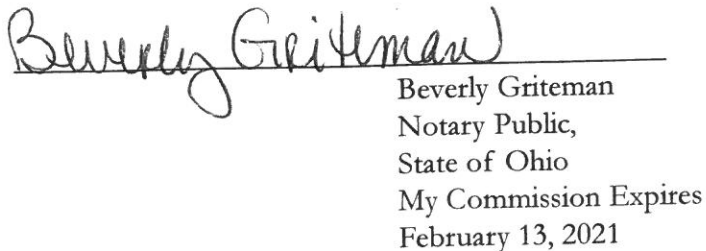 Beverly Griteman
Beverly Griteman
Notary Public,
State of Ohio
My Commission Expires
February 13, 2021